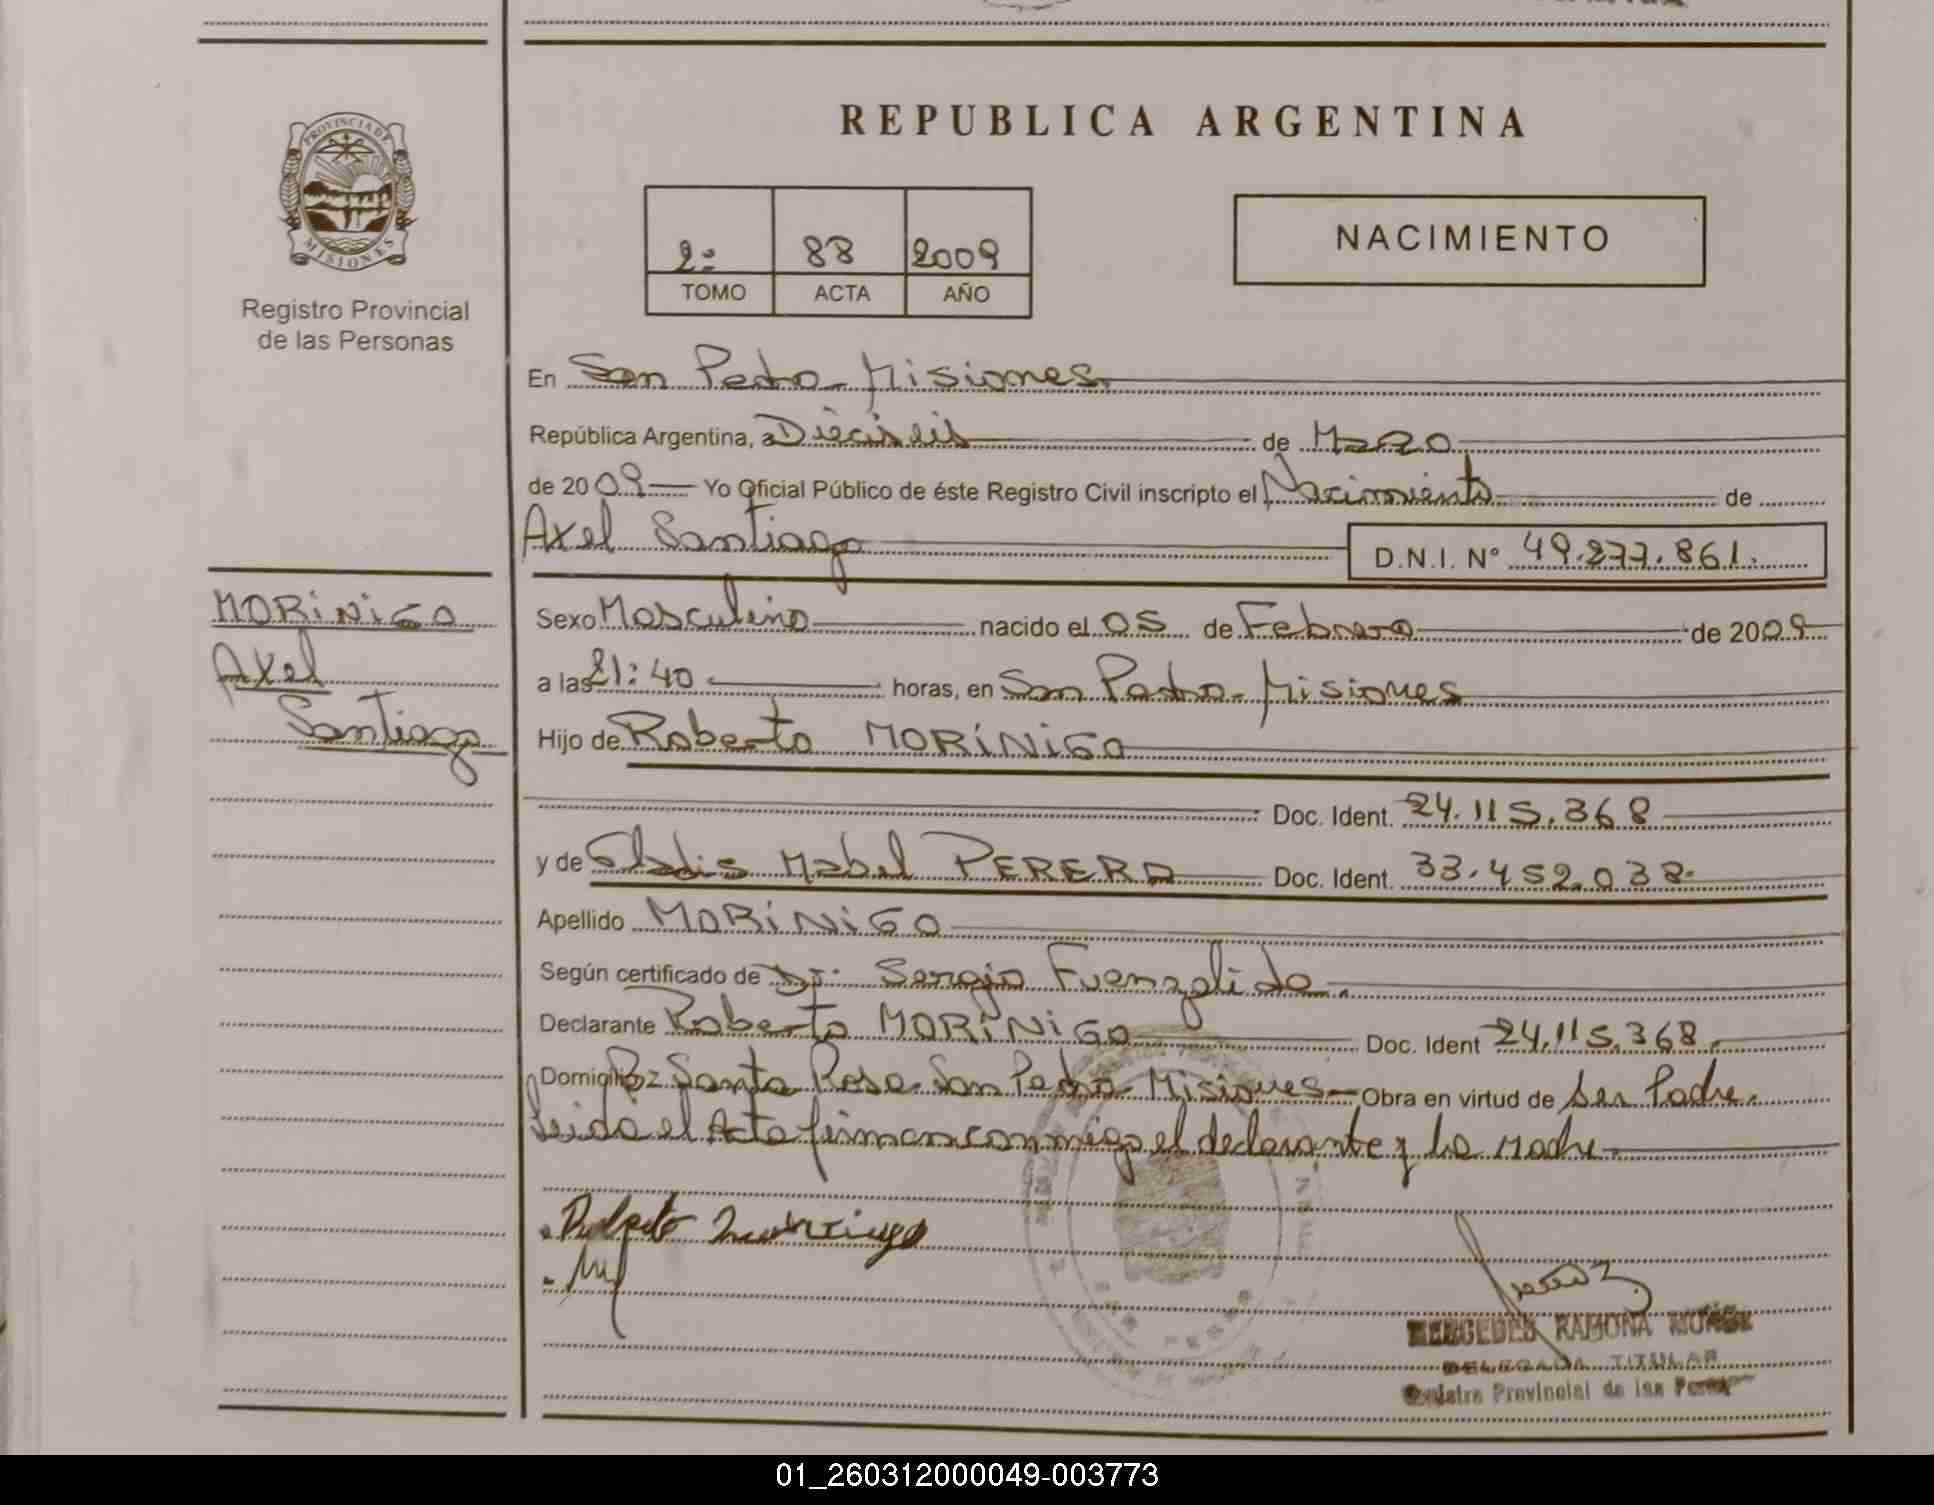 PROVINCIA DE
MISIONES
Registro Provincial
de las Personas
REPUBLICA ARGENTINA
2º 88 2009
TOMO ACTA AÑO
NACIMIENTO
En San Pedro - Misiones
República Argentina, a Dieciseis de Marzo
de 2009 Yo Oficial Público de éste Registro Civil inscripto el Nacimiento de
Axel Santiago D.N.I. Nº 49.277.861.
MORiNiGO
Axel
Santiago
Sexo Masculino nacido el 05 de Febrero de 2009
a las 21:40 horas, en San Pedro - Misiones
Hijo de Roberto MORíNiGO
Doc. Ident. 24.115.368
y de Gladis Mabel PERERA Doc. Ident. 33.452.038.
Apellido MORíNiGO
Según certificado de Dr. Sergio Fuenzalida.
Declarante Roberto MORíNiGO Doc. Ident 24.115.368.
Domicilio Santa Rosa - San Pedro - Misiones - Obra en virtud de Ser Padre.
Leida el Acta firman conmigo el declarante y La Madre.
MERCEDES RAMONA MUÑOZ
DELEGADA TITULAR
Registro Provincial de las Personas
01_260312000049-003773